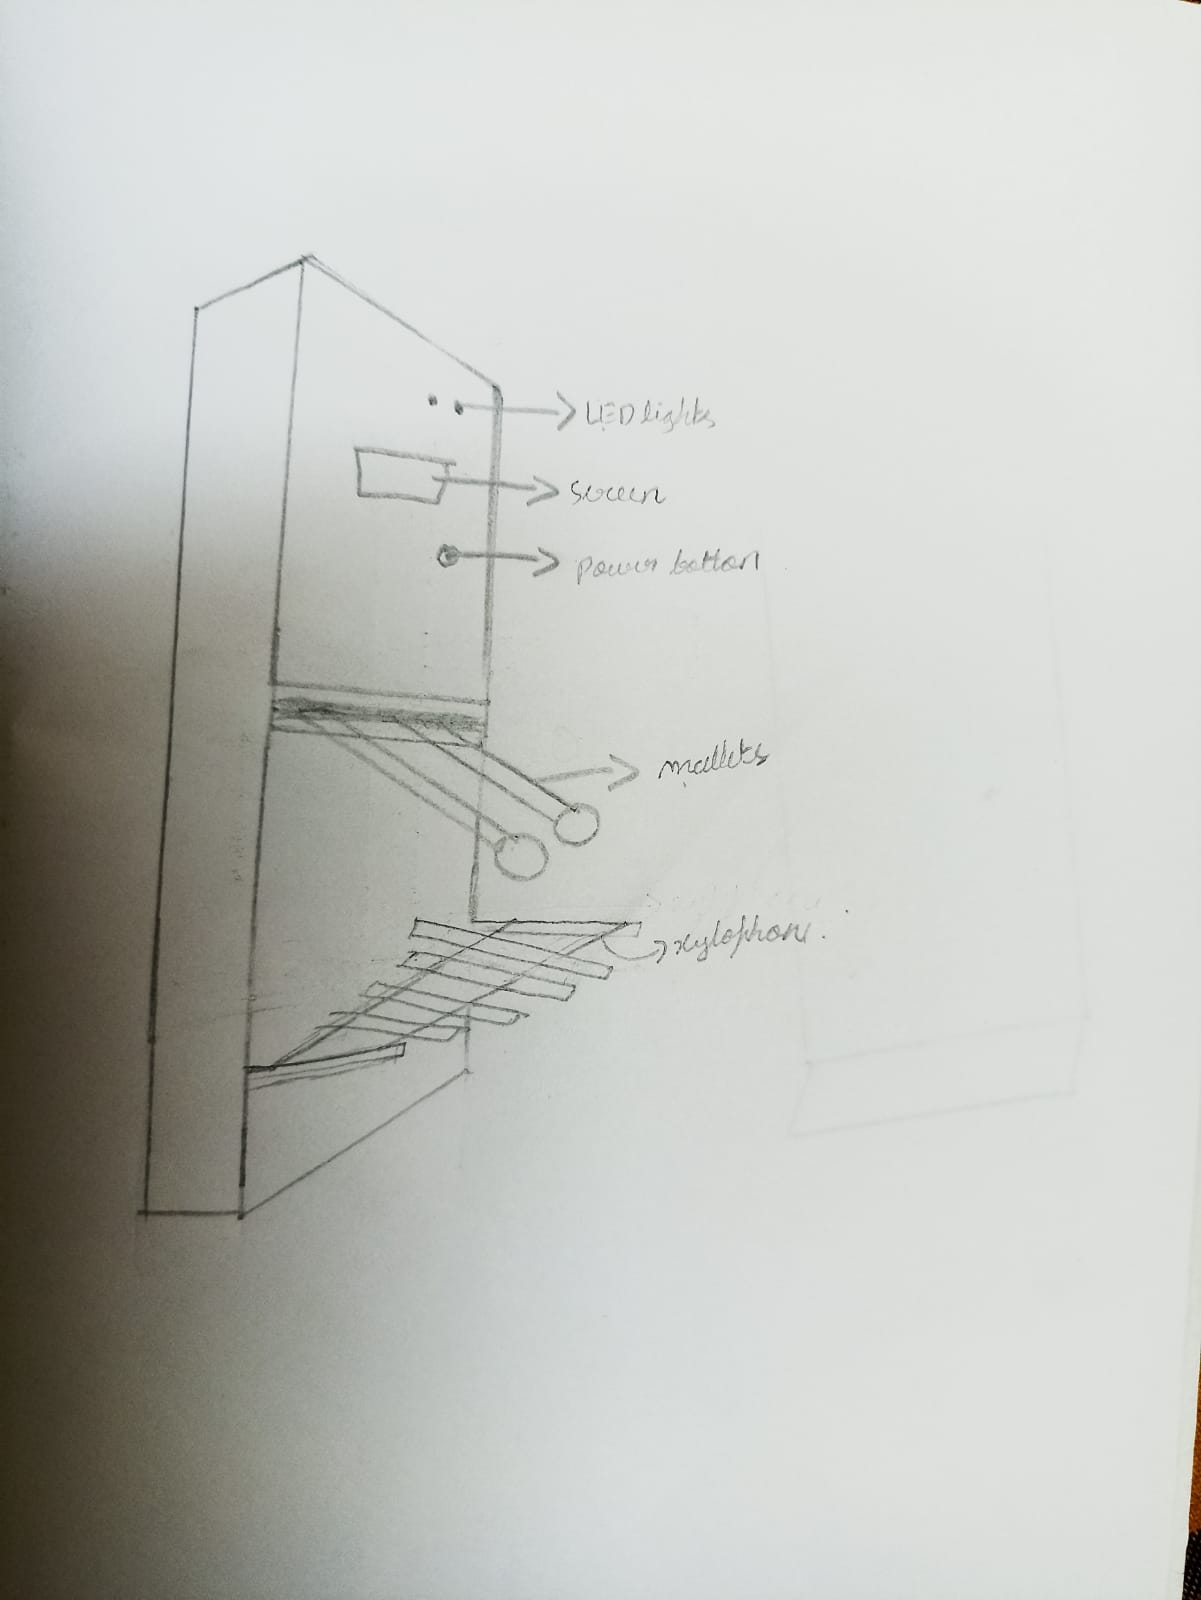 LED lights
screen
power botton
mallets
xylophone.